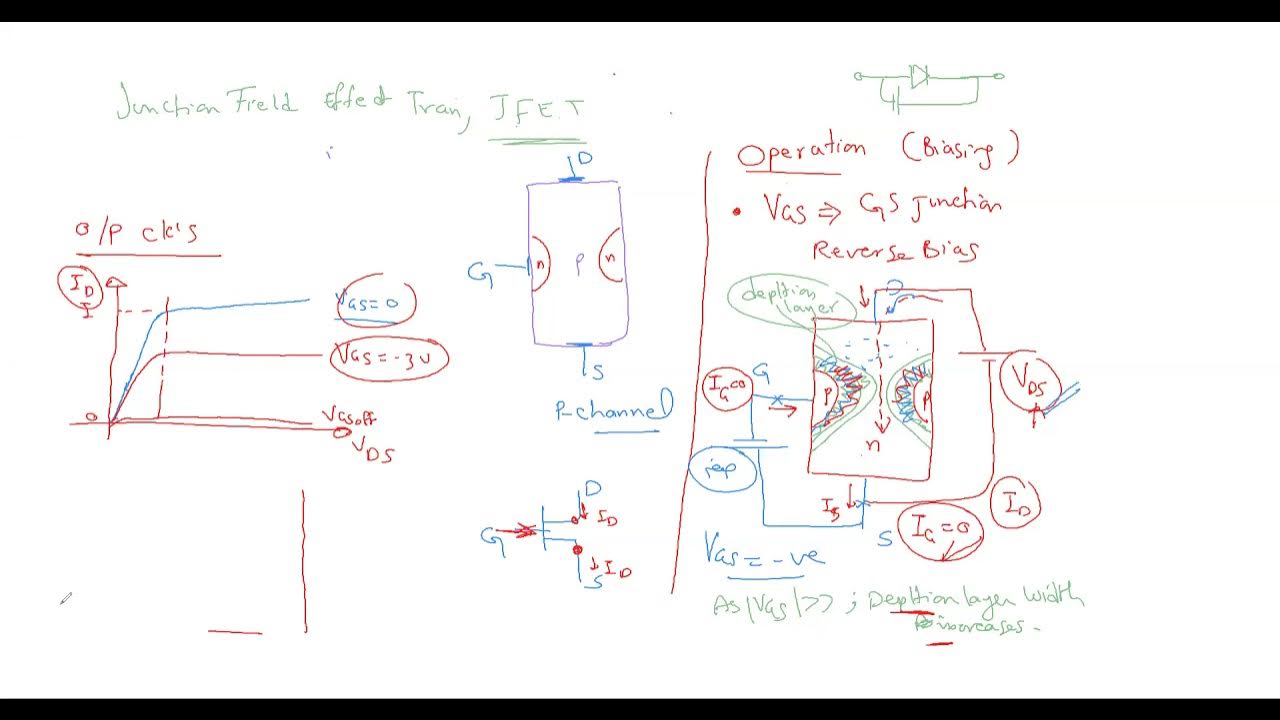 Junction Field Effect Tran, JFET
O/P ck's
I_D
I
V_GS = 0
V_GS = -3V
0
V_GS off
V_DS
D
G
n
P
n
S
P-channel
D
G
I_D
I_D
S
Operation (Biasing)
• V_GS ⇒ GS Junction
Reverse Bias
depltion
layer
D
I_G=0
G
P
P
n
V_DS
I_S
I_D
I_G = 0
S
V_GS = -ve
As |V_GS| >> ; Depltion layer width
increases.